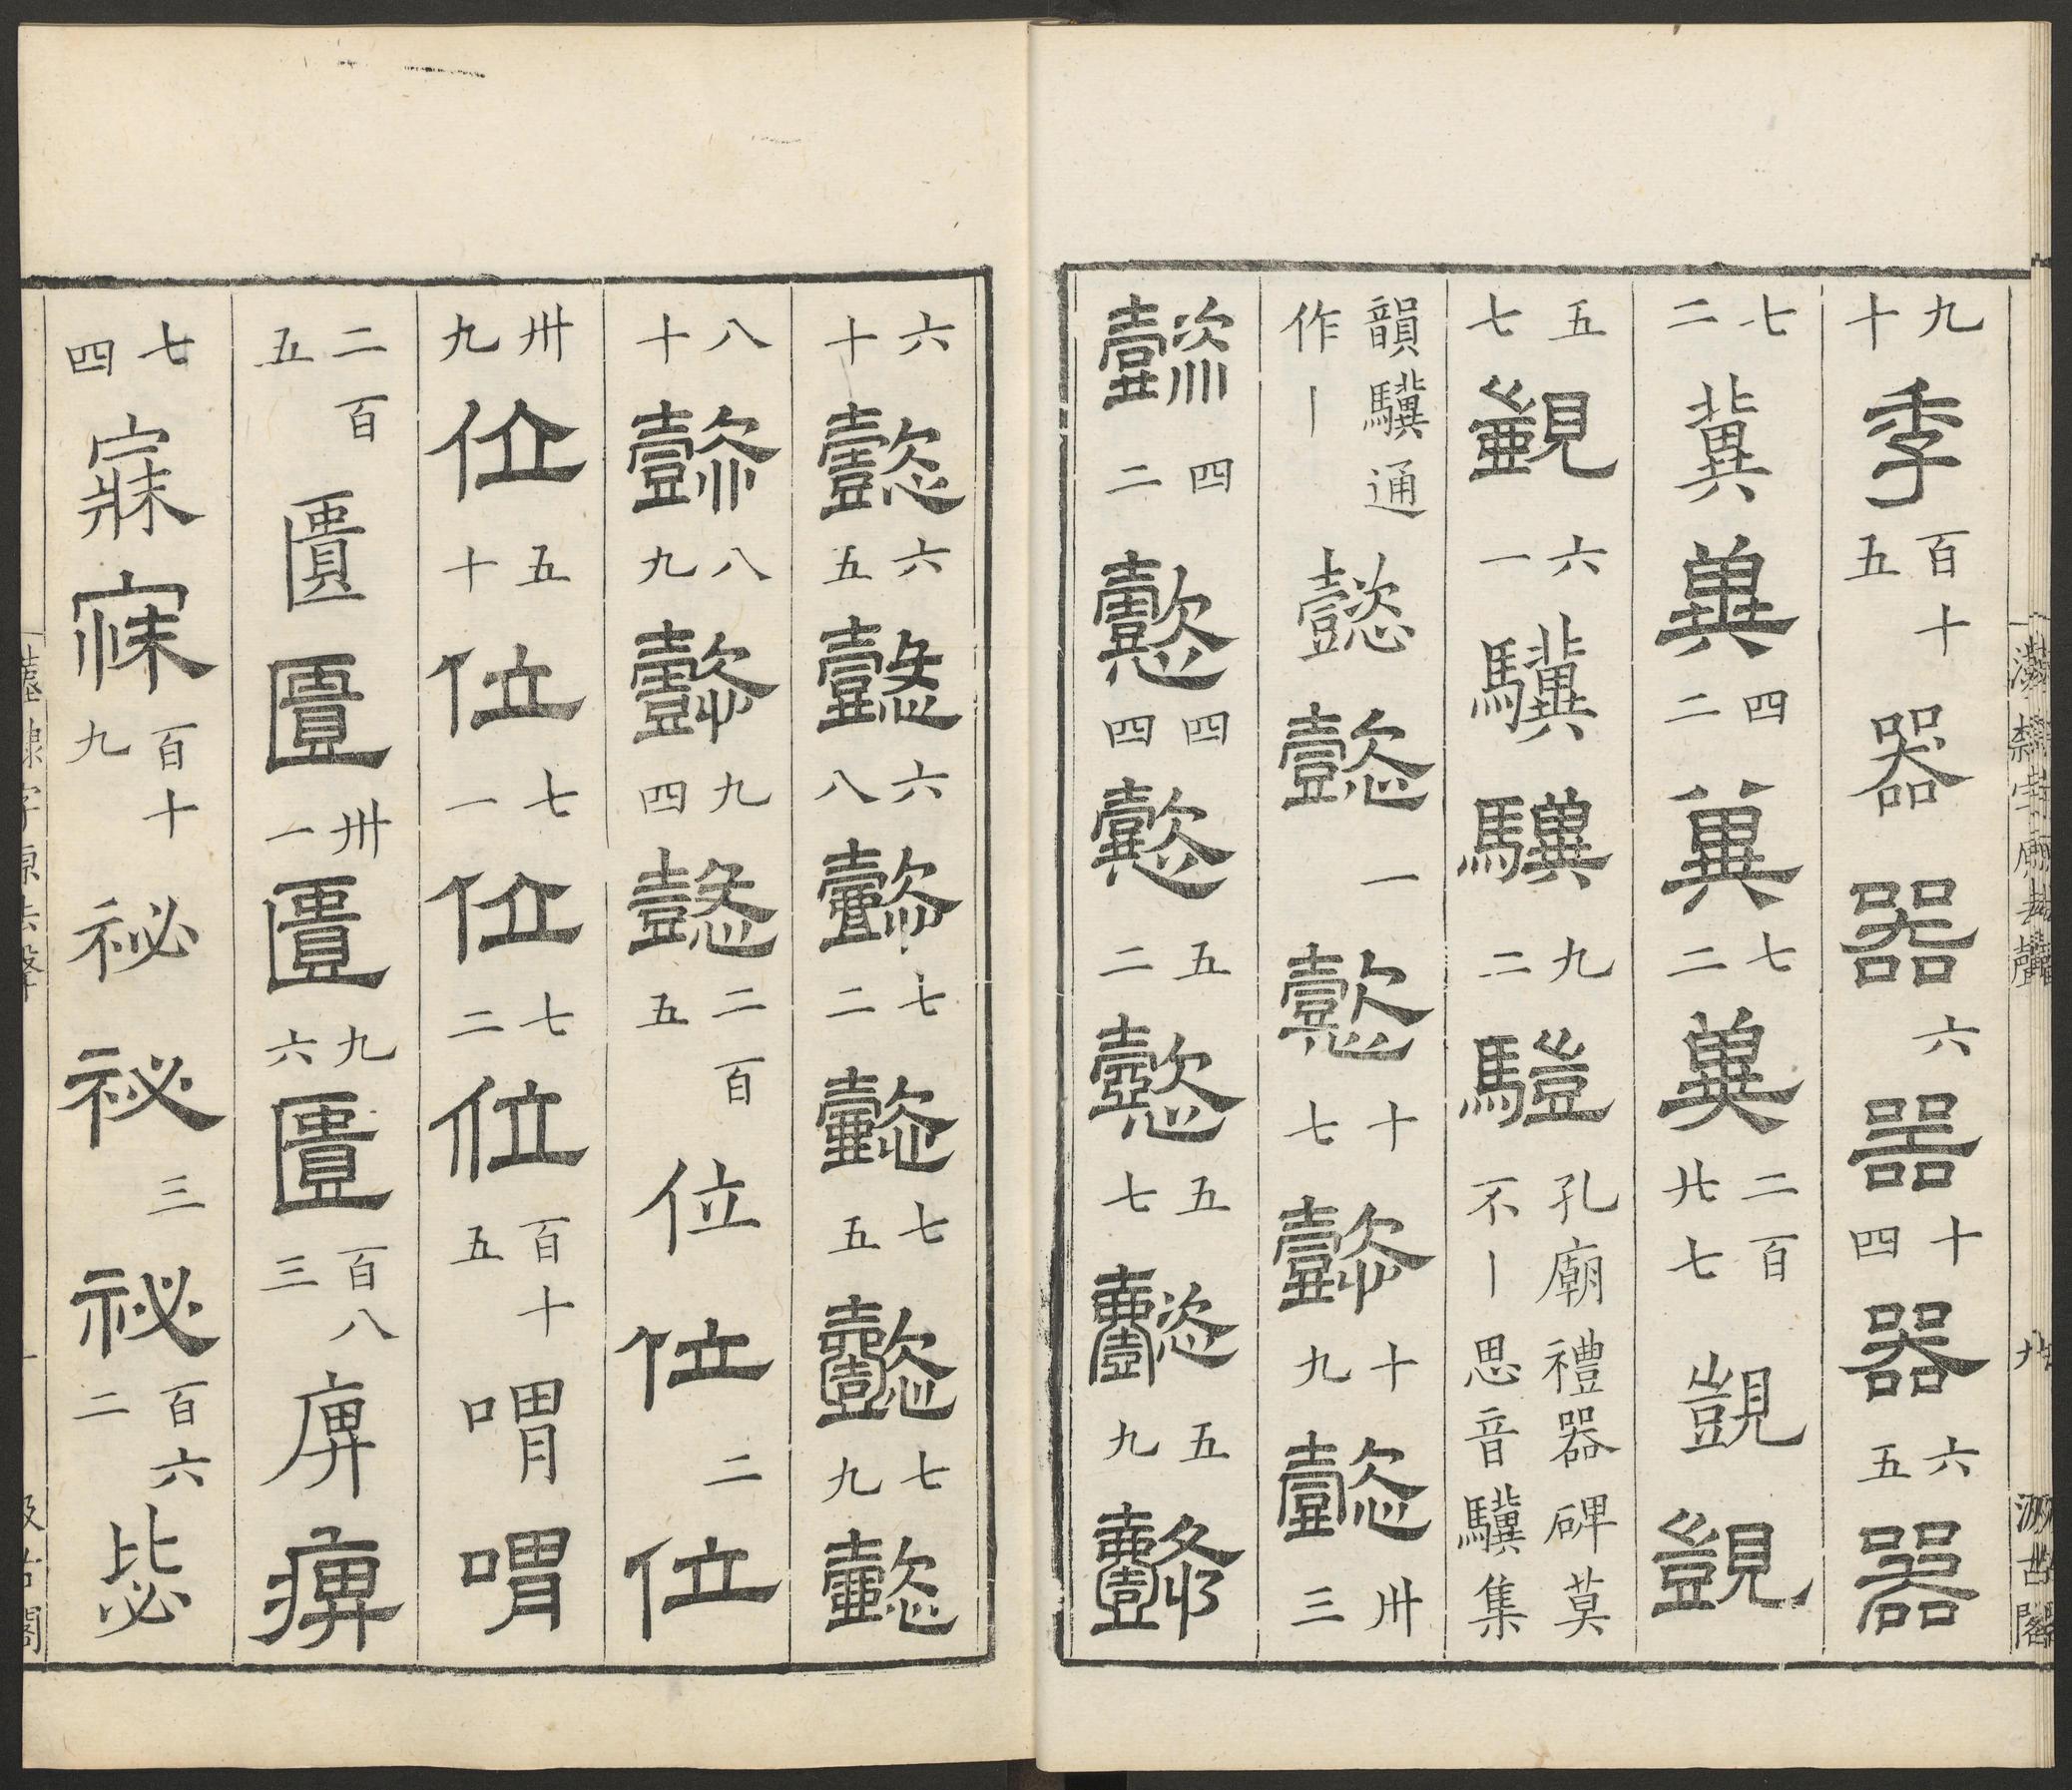 九十季百十五器器六器十四器六五器
七二冀冀四二冀七二冀二百廿七覬覬
五七覬六一驥驥九二驥孔廟禮器碑莫不丨思音驥集
韻驥通作丨懿懿一懿十七懿十九懿卅三
懿四二懿四四懿五二懿五七懿五九懿
六十懿六五懿六八懿七二懿七五懿七九懿
八十懿八九懿九四懿二百五位位二位
卅九位五十位七一位七二位百十五喟喟
二百五匱匱卅一匱九六匱百八三痹痹
七四寐寐百十九祕祕三祕百六二毖
漢隸字原去聲
汲古閣